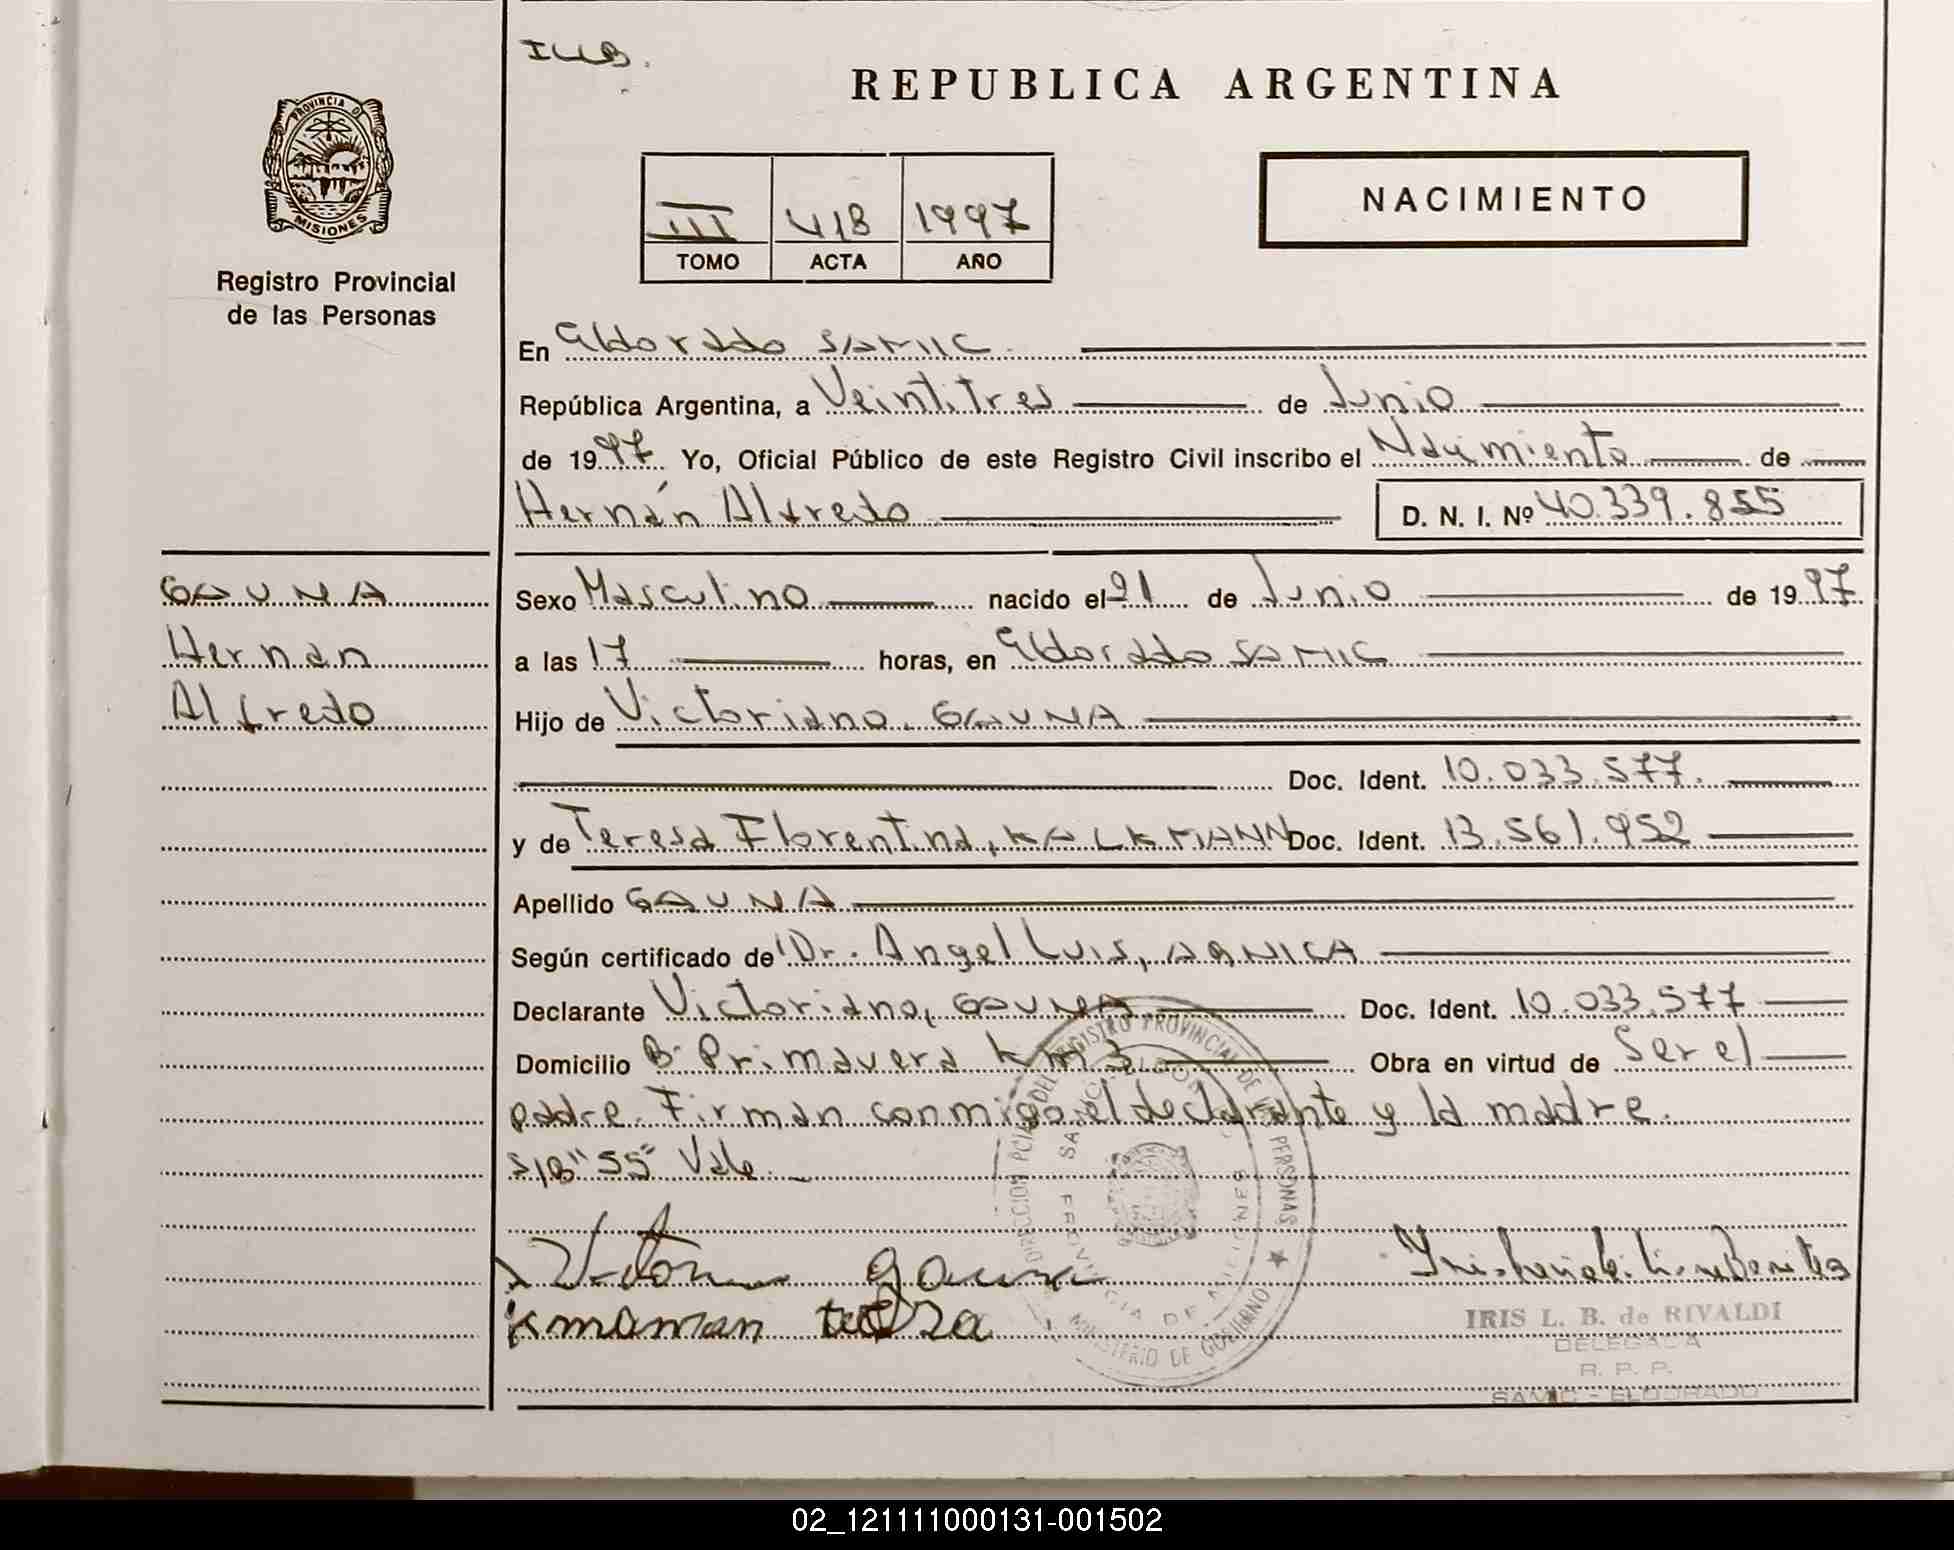 REPUBLICA ARGENTINA
PROVINCIA D
MISIONES
Registro Provincial
de las Personas
III 418 1997
TOMO ACTA AÑO
NACIMIENTO
En Eldorado SAMIC.
República Argentina, a Veintitres de Junio
de 1997 Yo, Oficial Público de este Registro Civil inscribo el Nacimiento de
Hernán Alfredo D. N. I. Nº 40.339.855
GAUNA
Hernan
Alfredo
Sexo Masculino nacido el 21 de Junio de 1997
a las 17 horas, en Eldorado SAMIC
Hijo de Victoriano, GAUNA
Doc. Ident. 10.033.577.
y de Teresa Florentina, KALKMANN Doc. Ident. 13.561.952
Apellido GAUNA
Según certificado de Dr. Angel Luis, AGNICA
Declarante Victoriano, GAUNA Doc. Ident. 10.033.577
Domicilio Bº Primavera Km 3 Obra en virtud de Ser el
padre. Firman conmigo el declarante y la madre.
S/B "55" Vale.
gauna
IRIS L. B. de RIVALDI
DELEGADA
R. P. P.
SAMIC - ELDORADO
DIRECCION PCIAL DEL REGISTRO PROVINCIAL DE LAS PERSONAS
MINISTERIO DE GOBIERNO
PROVINCIA DE MISIONES
02_121111000131-001502